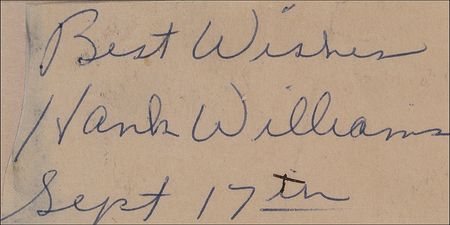 Best Wishes
Hank Williams
Sept 17th